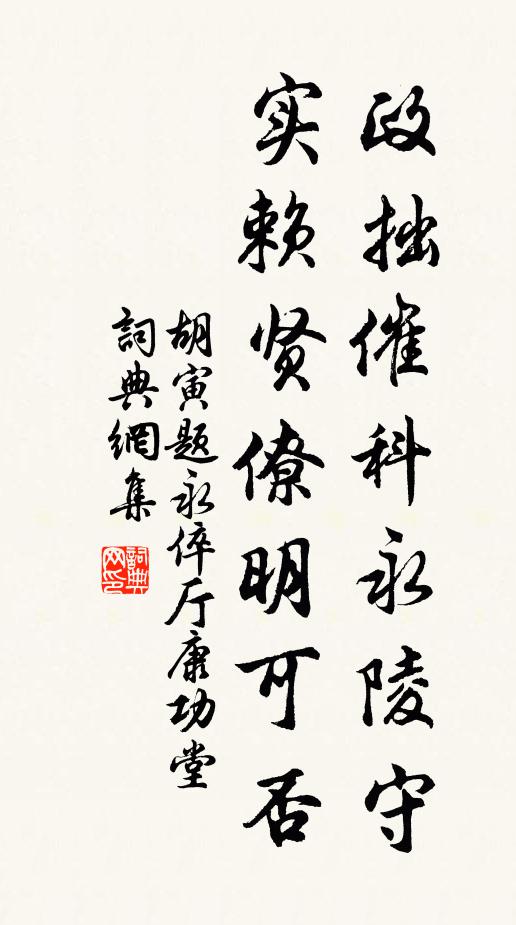 政拙催科永陵守
实赖贤僚明可否
胡寅题永倅厅康功堂
詞典網集
詞典网印